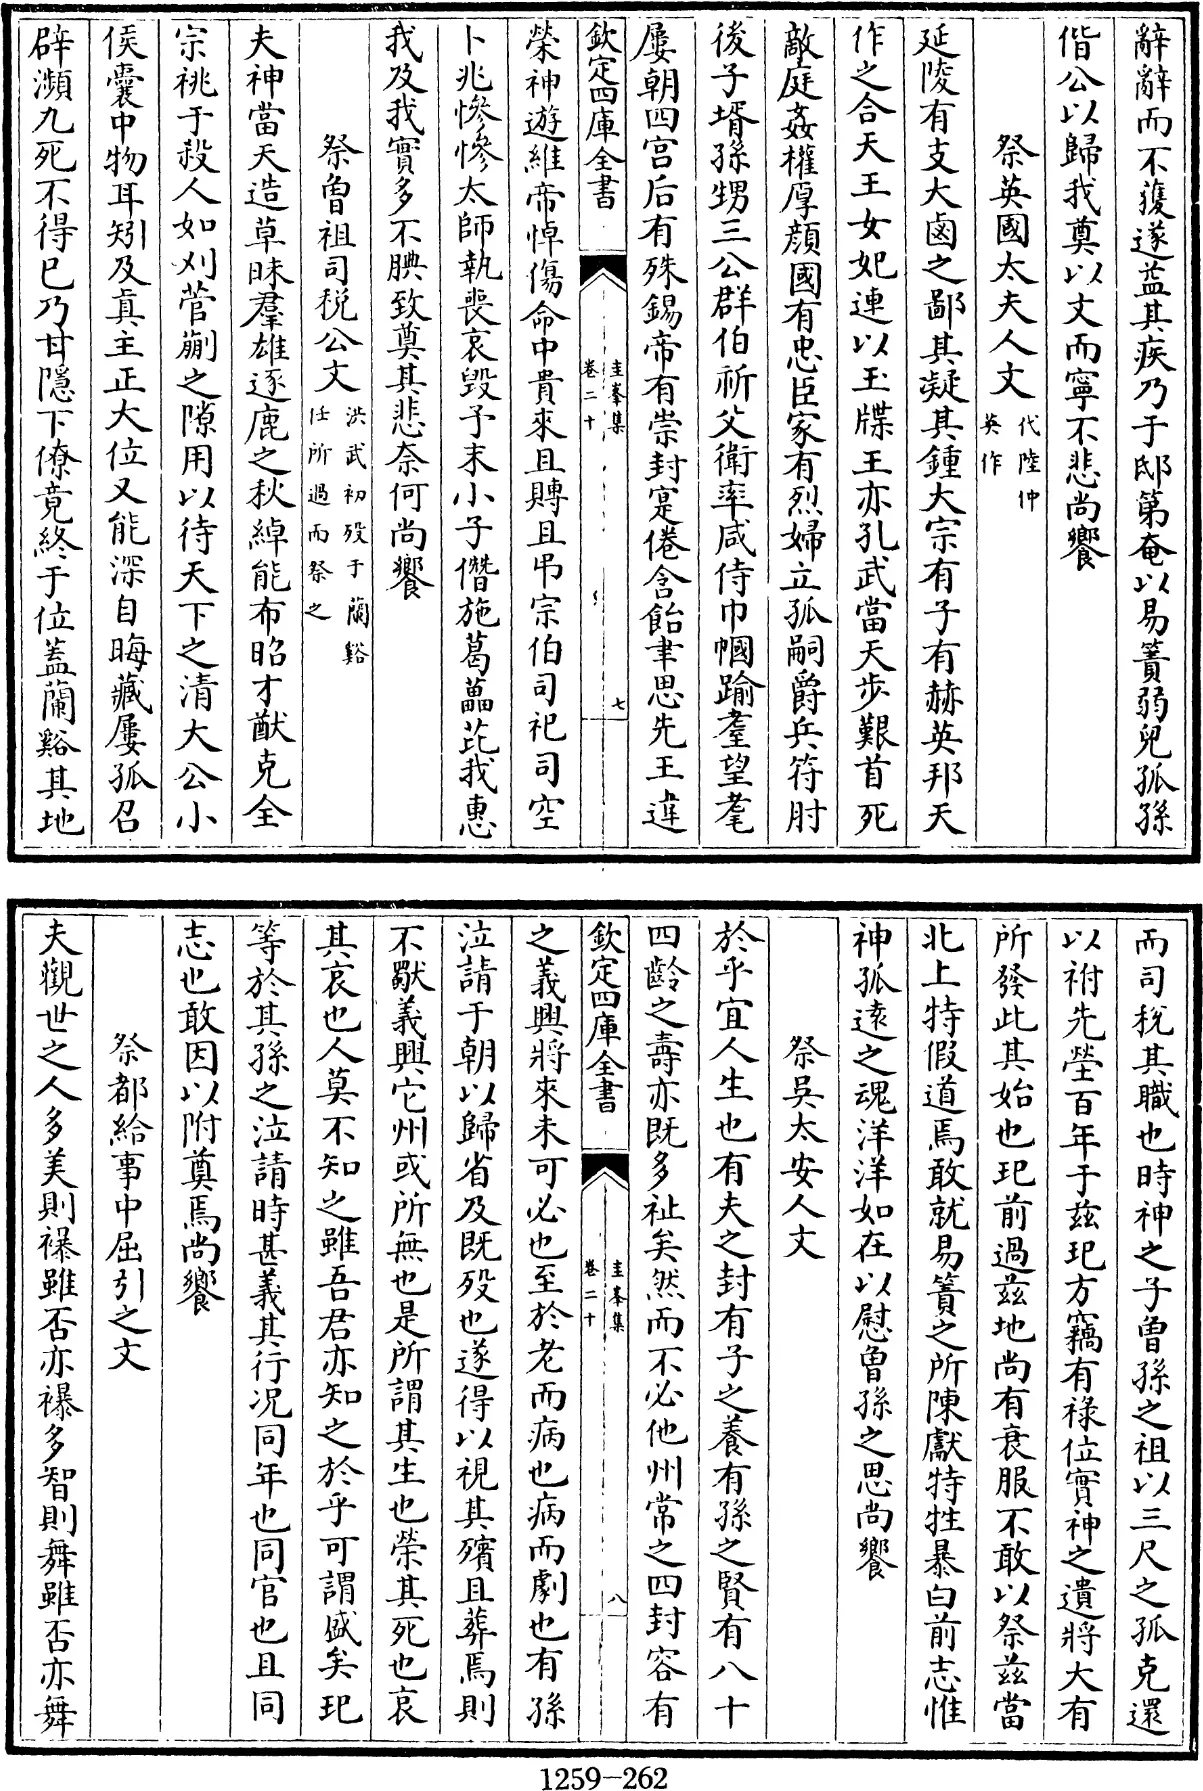 辭辭而不獲遂葢其疾乃于邸第奄以易簀弱兒孤孫
偕公以歸我奠以文而寧不悲尚饗
祭英國太夫人文代陸仲英作
延陵有支大鹵之鄙其凝其鍾大宗有子有赫英邦天
作之合天王女妃連以玉牒王亦孔武當天步艱首死
敵庭姦權厚顔國有忠臣家有烈婦立孤嗣爵兵符肘
後子壻孫甥三公群伯祈父衛率咸侍巾幗踰耋望耄
屢朝四宫后有殊錫帝有崇封寔倦含飴聿思先王違
欽定四庫全書
圭峯集
卷二十
七
榮神遊維帝悼傷命中貴來且賻且弔宗伯司祀司空
卜兆慘慘太師執喪哀毁予末小子僭施葛藟芘我惠
我及我實多不腆致奠其悲奈何尚饗
祭魯祖司税公文洪武初殁于蘭谿任所過而祭之
夫神當天造草昧羣雄逐鹿之秋綽能布昭才猷克全
宗祧于殺人如刈菅蒯之隙用以待天下之清大公小
侯囊中物耳矧及真主正大位又能深自晦藏屢孤召
辟瀕九死不得已乃甘隱下僚竟終于位蓋蘭谿其地
而司税其職也時神之子魯孫之祖以三尺之孤克還
以祔先塋百年于兹玘方竊有祿位實神之遺將大有
所發此其始也玘前過兹地尚有衰服不敢以祭兹當
北上特假道焉敢就易簀之所陳獻特牲暴白前志惟
神孤逺之魂洋洋如在以慰魯孫之思尚饗
祭吳太安人文
於乎宜人生也有夫之封有子之養有孫之賢有八十
四齡之壽亦既多祉矣然而不必他州常之四封容有
欽定四庫全書
圭峯集
卷二十
八
之義興將來未可必也至於老而病也病而劇也有孫
泣請于朝以歸省及既殁也遂得以視其殯且葬焉則
不歇義興它州或所無也是所謂其生也榮其死也哀
其哀也人莫不知之雖吾君亦知之於乎可謂盛矣玘
等於其孫之泣請時甚義其行况同年也同官也且同
志也敢因以附奠焉尚饗
祭都給事中屈引之文
夫觀世之人多美則襮雖否亦襮多智則舞雖否亦舞
1259—262